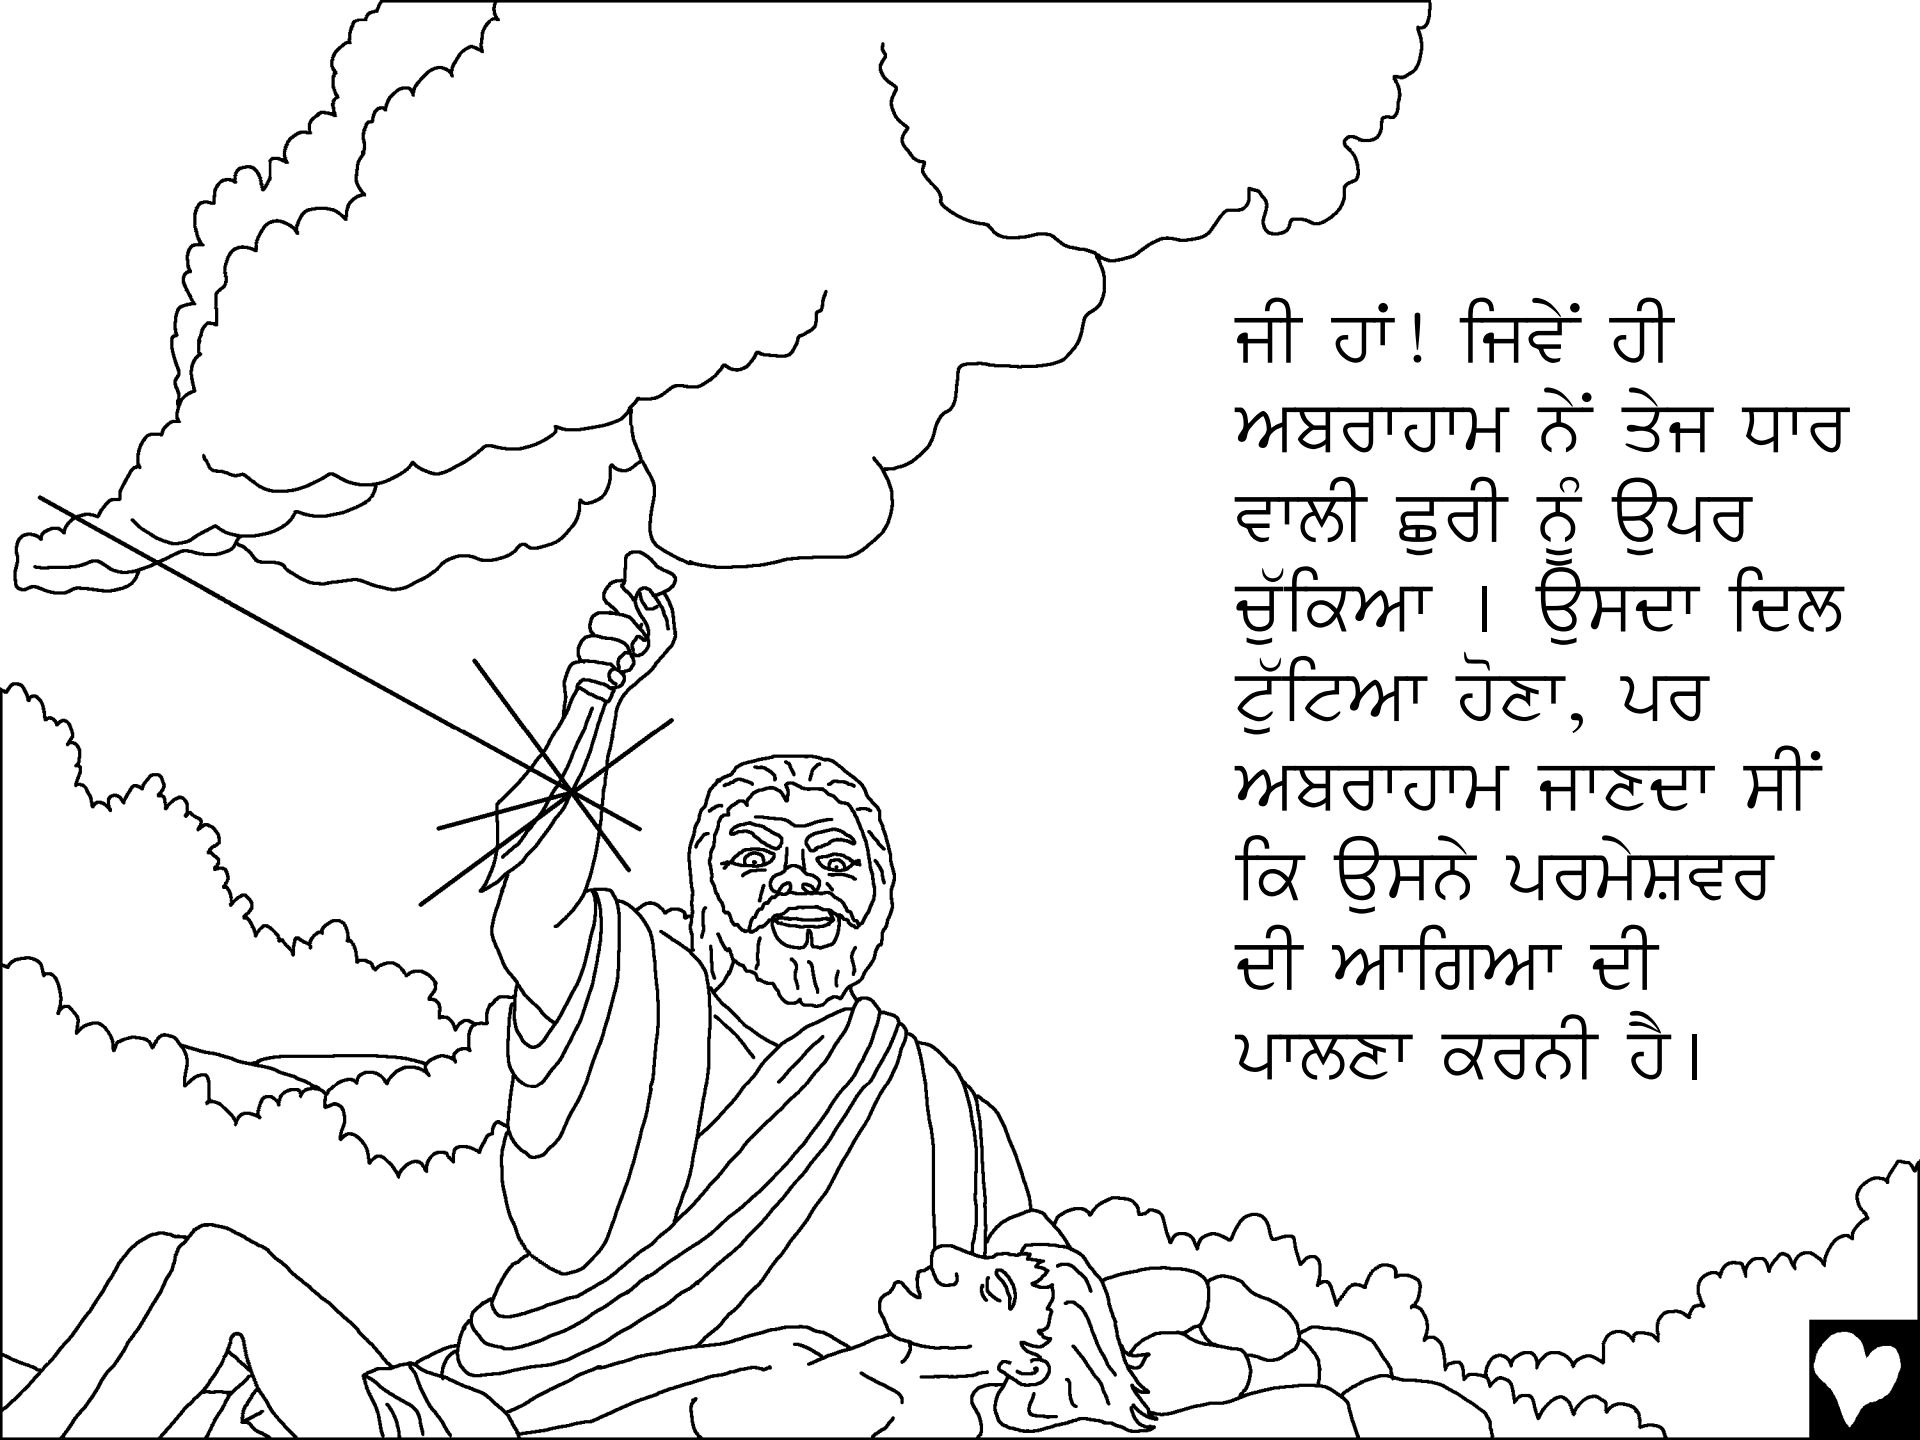 ਜੀ ਹਾਂ! ਜਿਵੇਂ ਹੀ
ਅਬਰਾਹਾਮ ਨੇਂ ਤੇਜ ਧਾਰ
ਵਾਲੀ ਛੁਰੀ ਨੂੰ ਉਪਰ
ਚੁੱਕਿਆ । ਉਸਦਾ ਦਿਲ
ਟੁੱਟਿਆ ਹੋਣਾ, ਪਰ
ਅਬਰਾਹਾਮ ਜਾਣਦਾ ਸੀਂ
ਕਿ ਉਸਨੇ ਪਰਮੇਸ਼ਵਰ
ਦੀ ਆਗਿਆ ਦੀ
ਪਾਲਣਾ ਕਰਨੀ ਹੈ।